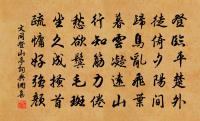 登臨平楚外
徙倚夕陽間
歸鳥亂飛葉
暮雲凝遠山
行知筋力倦
愁欲鬢毛斑
坐久成
疏慵好強顏
文同登山亭詞典網書